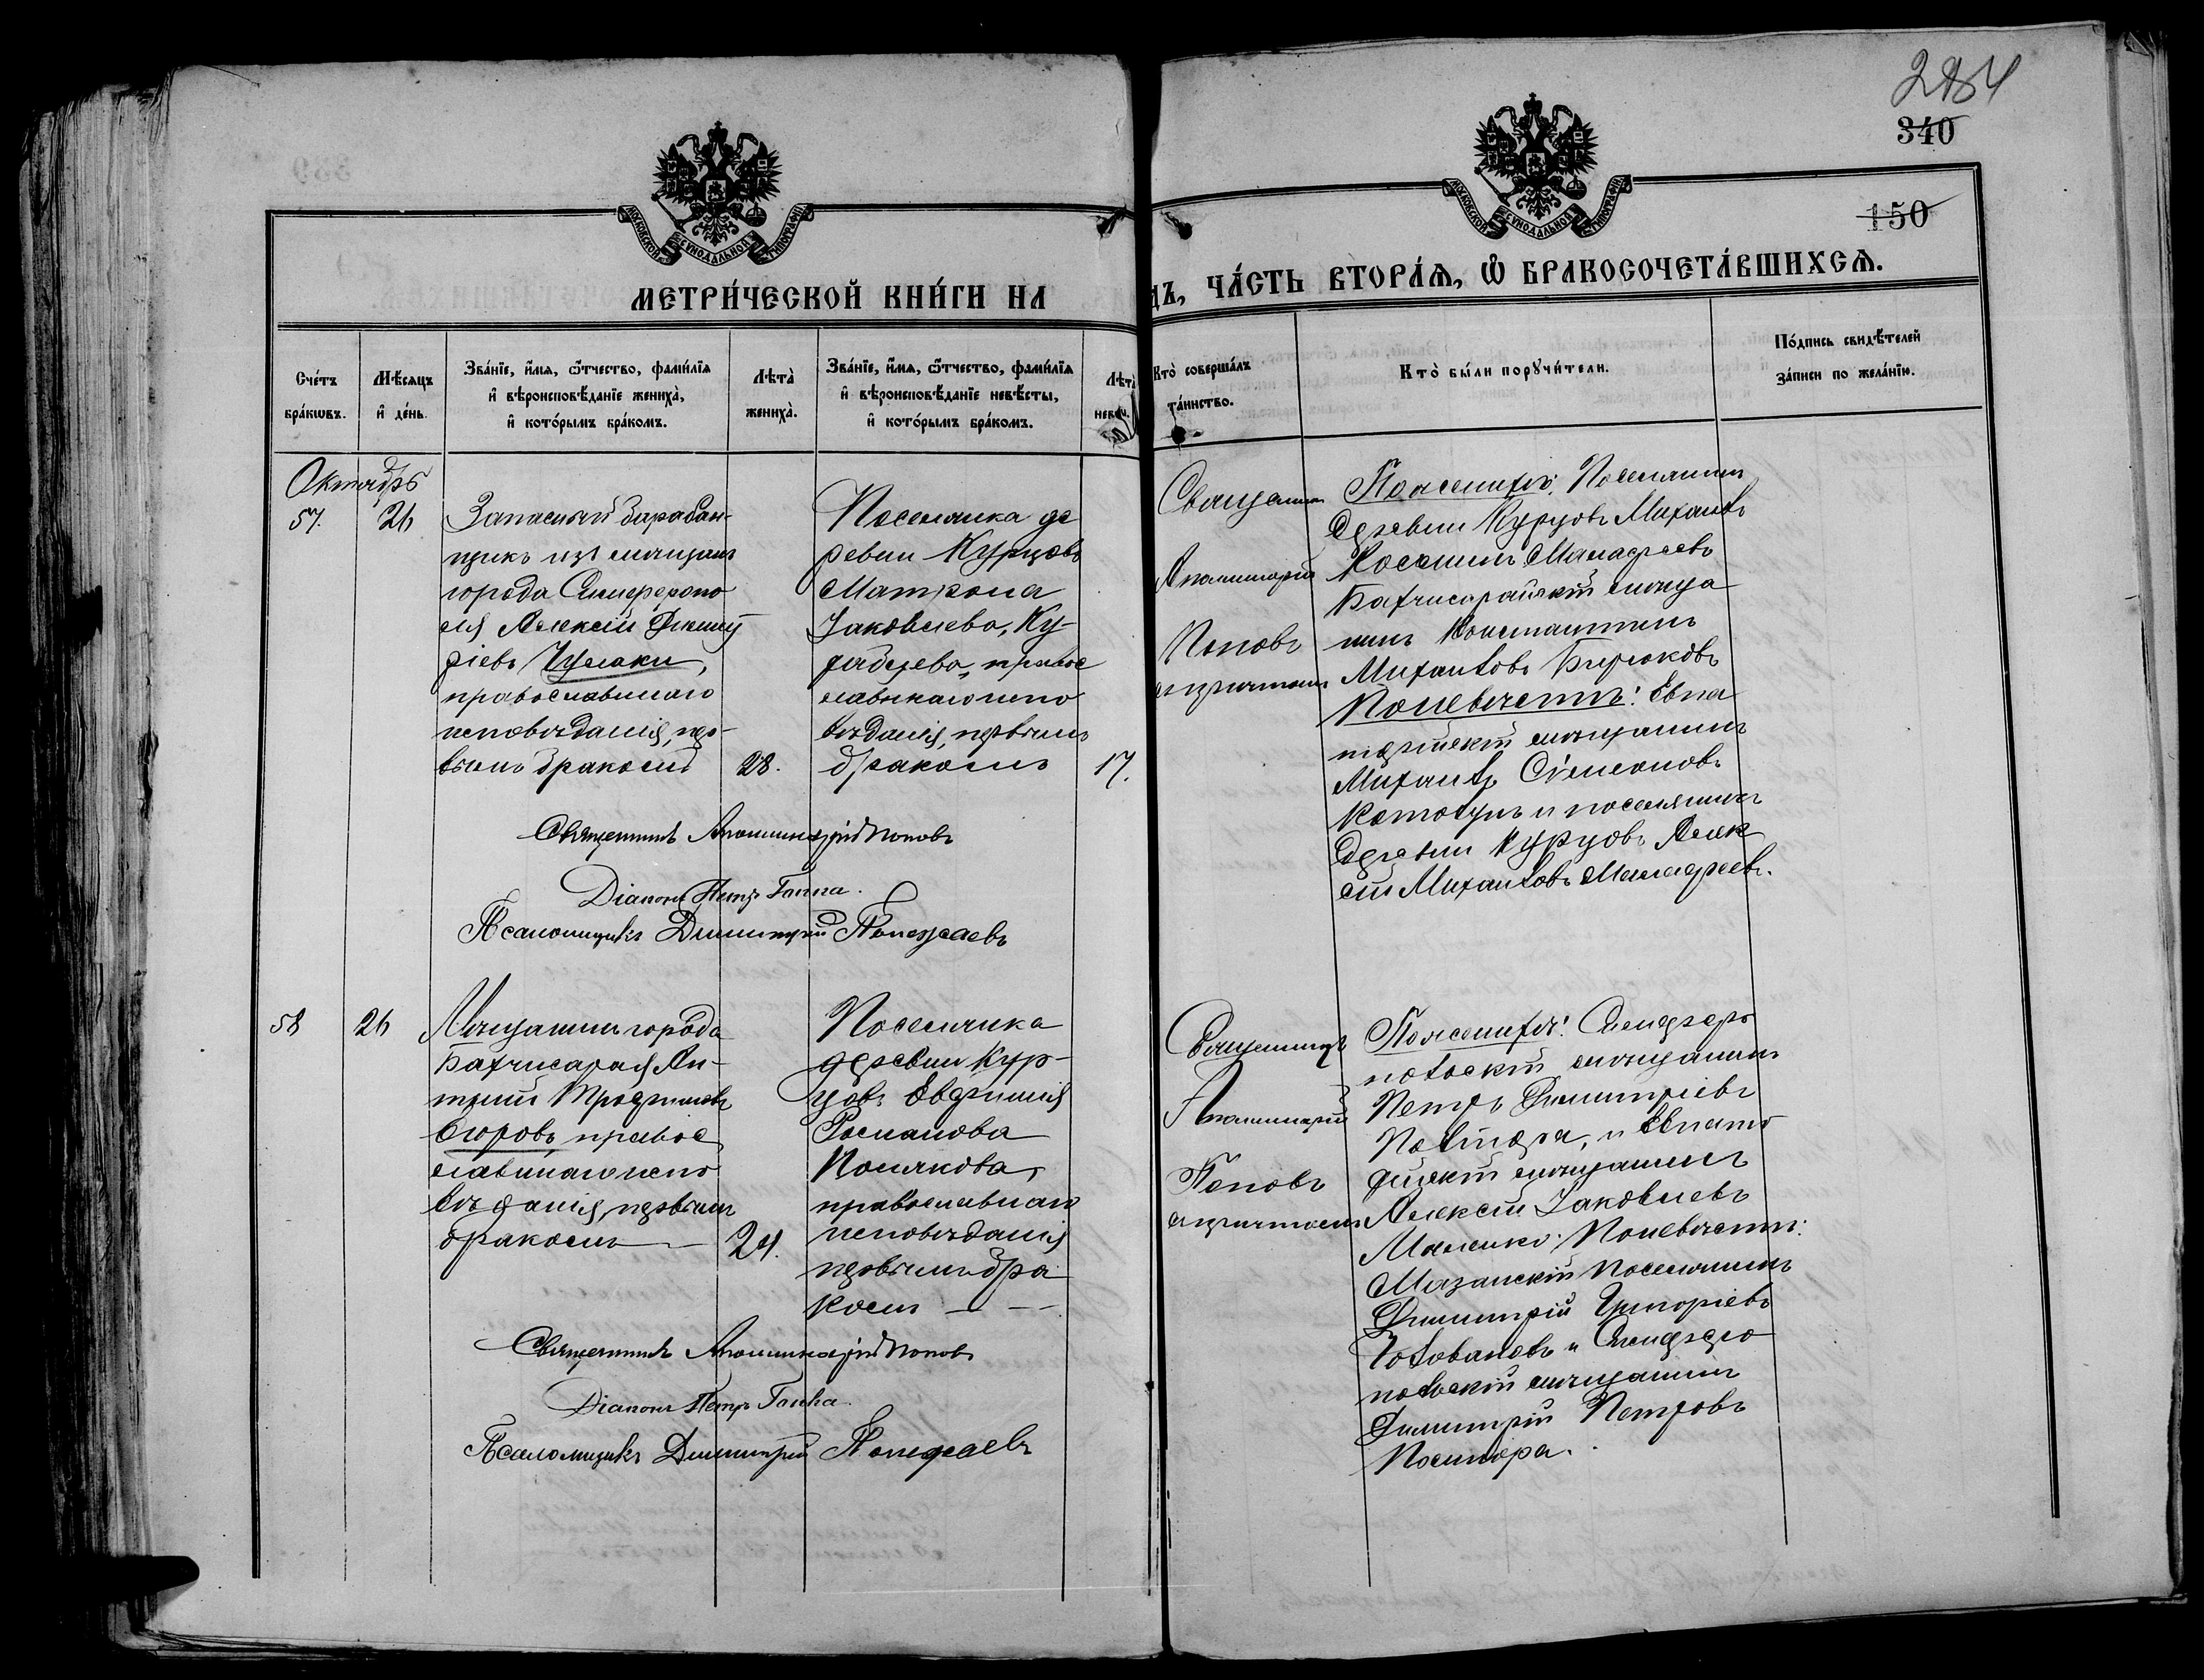 284
340
150
МОСКОВСКОЙ СѴНОДАЛЬНОЙ ТИПОГРАФІИ
МОСКОВСКОЙ СѴНОДАЛЬНОЙ ТИПОГРАФІИ
МЕТРИ́ЧЕСКОЙ КНИ́ГИ НА
ДЪ, ЧА́СТЬ ВТОРА́Ѧ, Ѡ҆ БРАКОСОЧЕТА́ВШИХСѦ.
Счетъ бра́кѡвъ.
Мѣсяцъ и҆ де́нь.
Зва́нїе, и҆́мѧ, ѻ҆́тчество, фами́лїѧ
и҆ вѣроисповѣ́данїе жениха̀,
и҆ кото́рымъ бра́комъ.
Лѣта̀ жениха̀.
Зва́нїе, и҆́мѧ, ѻ҆́тчество, фами́лїѧ
и҆ вѣроисповѣ́данїе невѣ́сты,
и҆ кото́рымъ бра́комъ.
Лѣта̀
Кто̀ соверша́лъ
та́инство.
Кто̀ бы́ли порꙋчи́тели.
По́дпись свидѣ́телей
за́писи по жела́нїю.
Октябрь
57.
26
Запасный барабан-
щикъ изъ мѣщанъ
города Симферопо
ля Алексѣй Димит
ріевъ Чумаки,
православнаго
исповѣданія, пер-
вымъ бракомъ
28.
Поселянка де
ревни Курцовъ
Матрона
Іаковлева,
правос
лавнаго испо
вѣданія, первымъ
бракомъ
17.
Священникъ
Аполлинарій
Поповъ
съ причтомъ
По женихѣ: Поселянинъ
деревни Курцовъ Михаилъ
Бахчисарайскій мѣща
нинъ Константинъ
Михаиловъ Бирюковъ
По невѣстѣ: Евпа
торійскій мѣщанинъ
Михаилъ Симеоновъ
и поселянинъ
деревни Курцовъ Алек
сѣй Михаиловъ
Священникъ Аполлинарій Поповъ
Діаконъ Петръ Ганна.
Псаломщикъ Димитрій Полежаевъ
58
26
Мѣщанинъ города
Бахчисарая Ан-
тоній Трофимовъ
правос
лавнаго испо
вѣданія, первымъ
бракомъ
24.
Поселянка
деревни Кур-
цовъ Евфимія
Романова
Полякова,
православнаго
исповѣданія
первымъ бра
комъ
Священникъ
Аполлинарій
Поповъ
съ причтомъ
По женихѣ: Симферо
польскій мѣщанинъ
Петръ Димитріевъ
и Евпато
рійскій мѣщанинъ
Алексѣй Іаковлевъ
По невѣстѣ:
Мазанскій поселянинъ
Димитрій Григоріевъ
Головановъ и Симферо
польскій мѣщанинъ
Димитрій Петровъ
Священникъ Аполлинарій Поповъ
Діаконъ Петръ Ганна.
Псаломщикъ Димитрій Полежаевъ